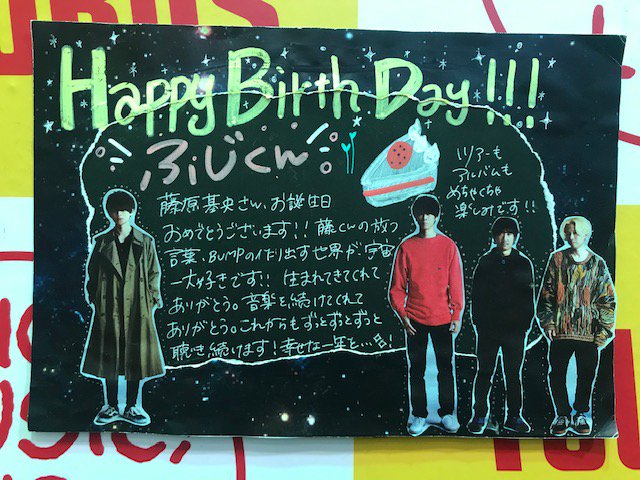 Happy Birth Day!!!
ふじくん
藤原基央さん、お誕生日
おめでとうございます!! 藤くんの放つ
言葉、BUMPの作り出す世界が、宇宙
一大好きです!! 生まれてきてくれて
ありがとう。音楽を続けてくれて
ありがとう。これからもずっとずっとずっと
聴き続けます!幸せな一年を…!
ツアーも
アルバムも
めちゃくちゃ
楽しみです!!